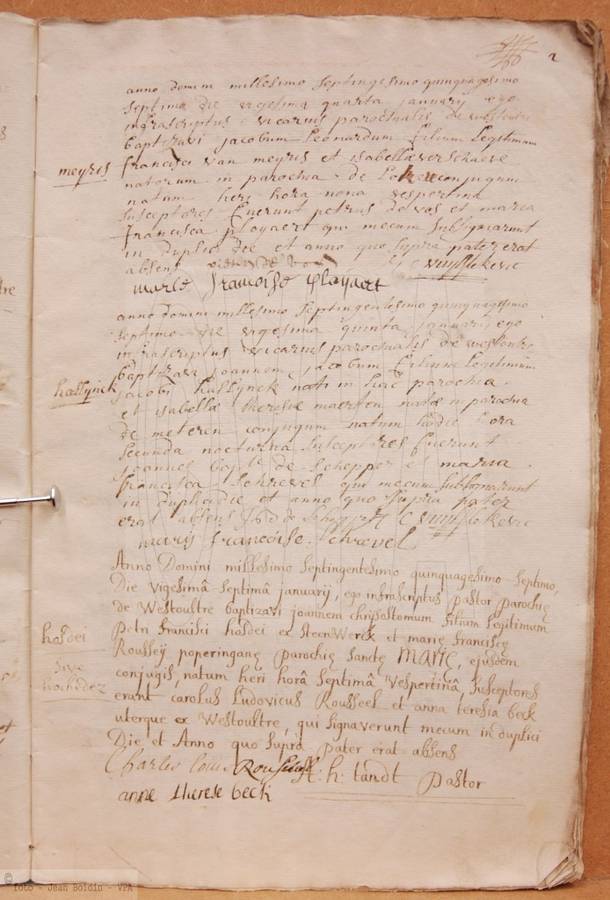 2
anno domini millesimo septingesimo quinquagesimo
septima die vigesima quarta januarij ego
infrascriptus vicarius parochialis de westoutre
baptizavi jacobum Leonardum filium Legitimum
meyris
francisci van meyris et isabellæ verschaeve
natorum in parochia de conjugum
natum heri hora nona vespertina
susceptores fuerunt petrus de vos et maria
francisca ployaert qui mecum subsignarunt
in duplici die et anno quo supra pater erat
absens
marie francoise ployaert
anno domini millesimo septingentesimo quinquagesimo
septimo die vigesima quinta januarij ego
infrascriptus vicarius parochialis de westoutre
baptizavi joannem jacobum filium Legitimum
hallijnck
jacobi hallijnck nati in hac parochia
et isabellæ theresiæ maerten natæ in parochia
de meteren conjugum natum hodie hora
secunda nocturna susceptores fuerunt
joannes de schepper et maria
francisca schrevel qui mecum subsignarunt
in duplici die et anno quo supra pater
erat absens
marij francoise schrevel
Anno Domini millesimo septingentesimo quinquagesimo septimo,
Die vigesimâ septimâ januarij, ego infrascriptus pastor parochiæ
de Westoultre baptizavi joannem chrisostomum filium legitimum
hosdei
petri francisci hosdei ex SteenWerck et mariæ franciscæ
Roussey poperinganæ parochiæ sanctæ MARIÆ, ejusdem
sive
hochedez
conjugis, natum heri horâ septimâ vespertinâ, susceptores
erant carolus Ludovicus Rousseel et anna teresia beck
uterque ex Westoultre, qui signaverunt mecum in duplici
Die et Anno quo suprà pater erat absens
Charles louis h: tandt pastor
anne therese beck
© foto - Jean Boidin - VPA